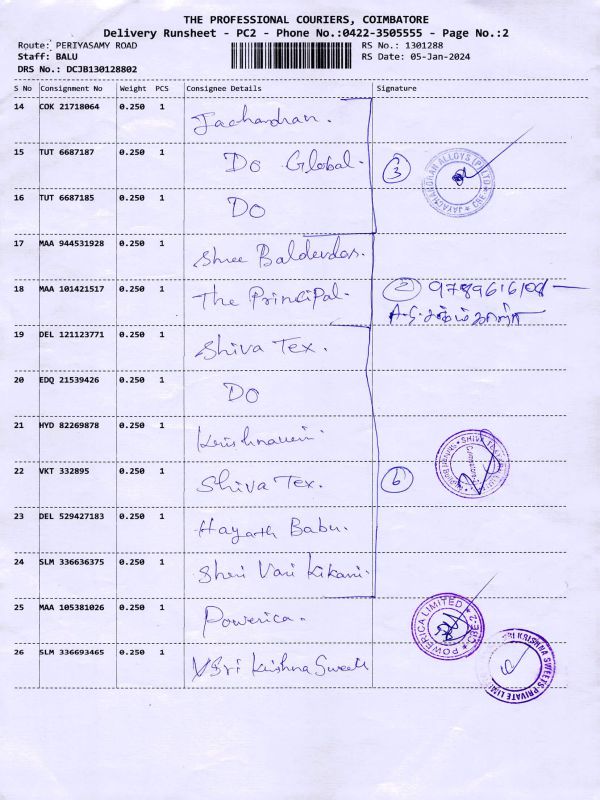 THE PROFESSIONAL COURIERS, COIMBATORE
Delivery Runsheet - PC2 - Phone No.:0422-3505555 - Page No.:2
Route: PERIYASAMY ROAD
RS No.: 1301288
Staff: BALU
RS Date: 05-Jan-2024
DRS No.: DCJB130128802
S No Consignment No Weight PCS Consignee Details Signature
14 COK 21718064 0.250 1 Jachandran.
15 TUT 6687187 0.250 1 Do Global. 3
JAYACHANDRAN ALLOYS (P) LTD * CBE *
16 TUT 6687185 0.250 1 Do
17 MAA 944531928 0.250 1 Shree Baldevdas.
18 MAA 101421517 0.250 1 The Principal. 2
19 DEL 121123771 0.250 1 Shiva Tex.
20 EDQ 21539426 0.250 1 Do
21 HYD 82269878 0.250 1 Krishnaveni
SHIVA
Coimbatore
22 VKT 332895 0.250 1 Shiva Tex. 6
23 DEL 529427183 0.250 1 Hayath Babu.
24 SLM 336636375 0.250 1 Shri Vari Kikani.
25 MAA 105381026 0.250 1 Powerica.
POWERICA LIMITED * CBE-2 *
26 SLM 336693465 0.250 1 Sri Krishna Sweets
SRI KRISHNA SWEETS PRIVATE LIMITED